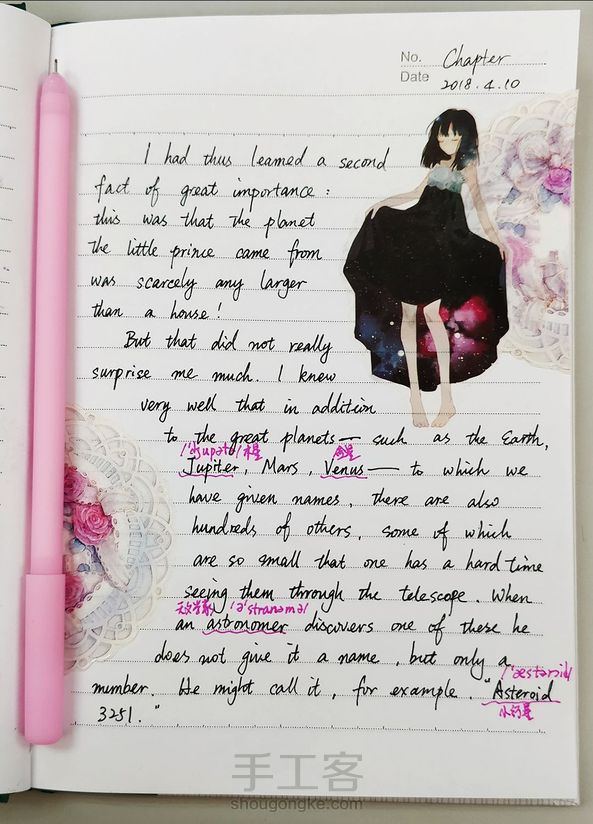 No. Chapter
Date 2018.4.10
I had thus learned a second
fact of great importance :
this was that the planet
the little prince came from
was scarcely any larger
than a house!
But that did not really
surprise me much. I knew
very well that in addition
to the great planets — such as the Earth,
/'dʒupətə/ 木星 金星
Jupiter, Mars, Venus — to which we
have given names, there are also
hundreds of others, some of which
are so small that one has a hard time
seeing them through the telescope. When
天文学家 /ə'strɑnəmə/
an astronomer discovers one of these he
does not give it a name, but only a
/'æstərɔid/
number. He might call it, for example. "Asteroid
小行星
3251."
手工客
shougongke.com